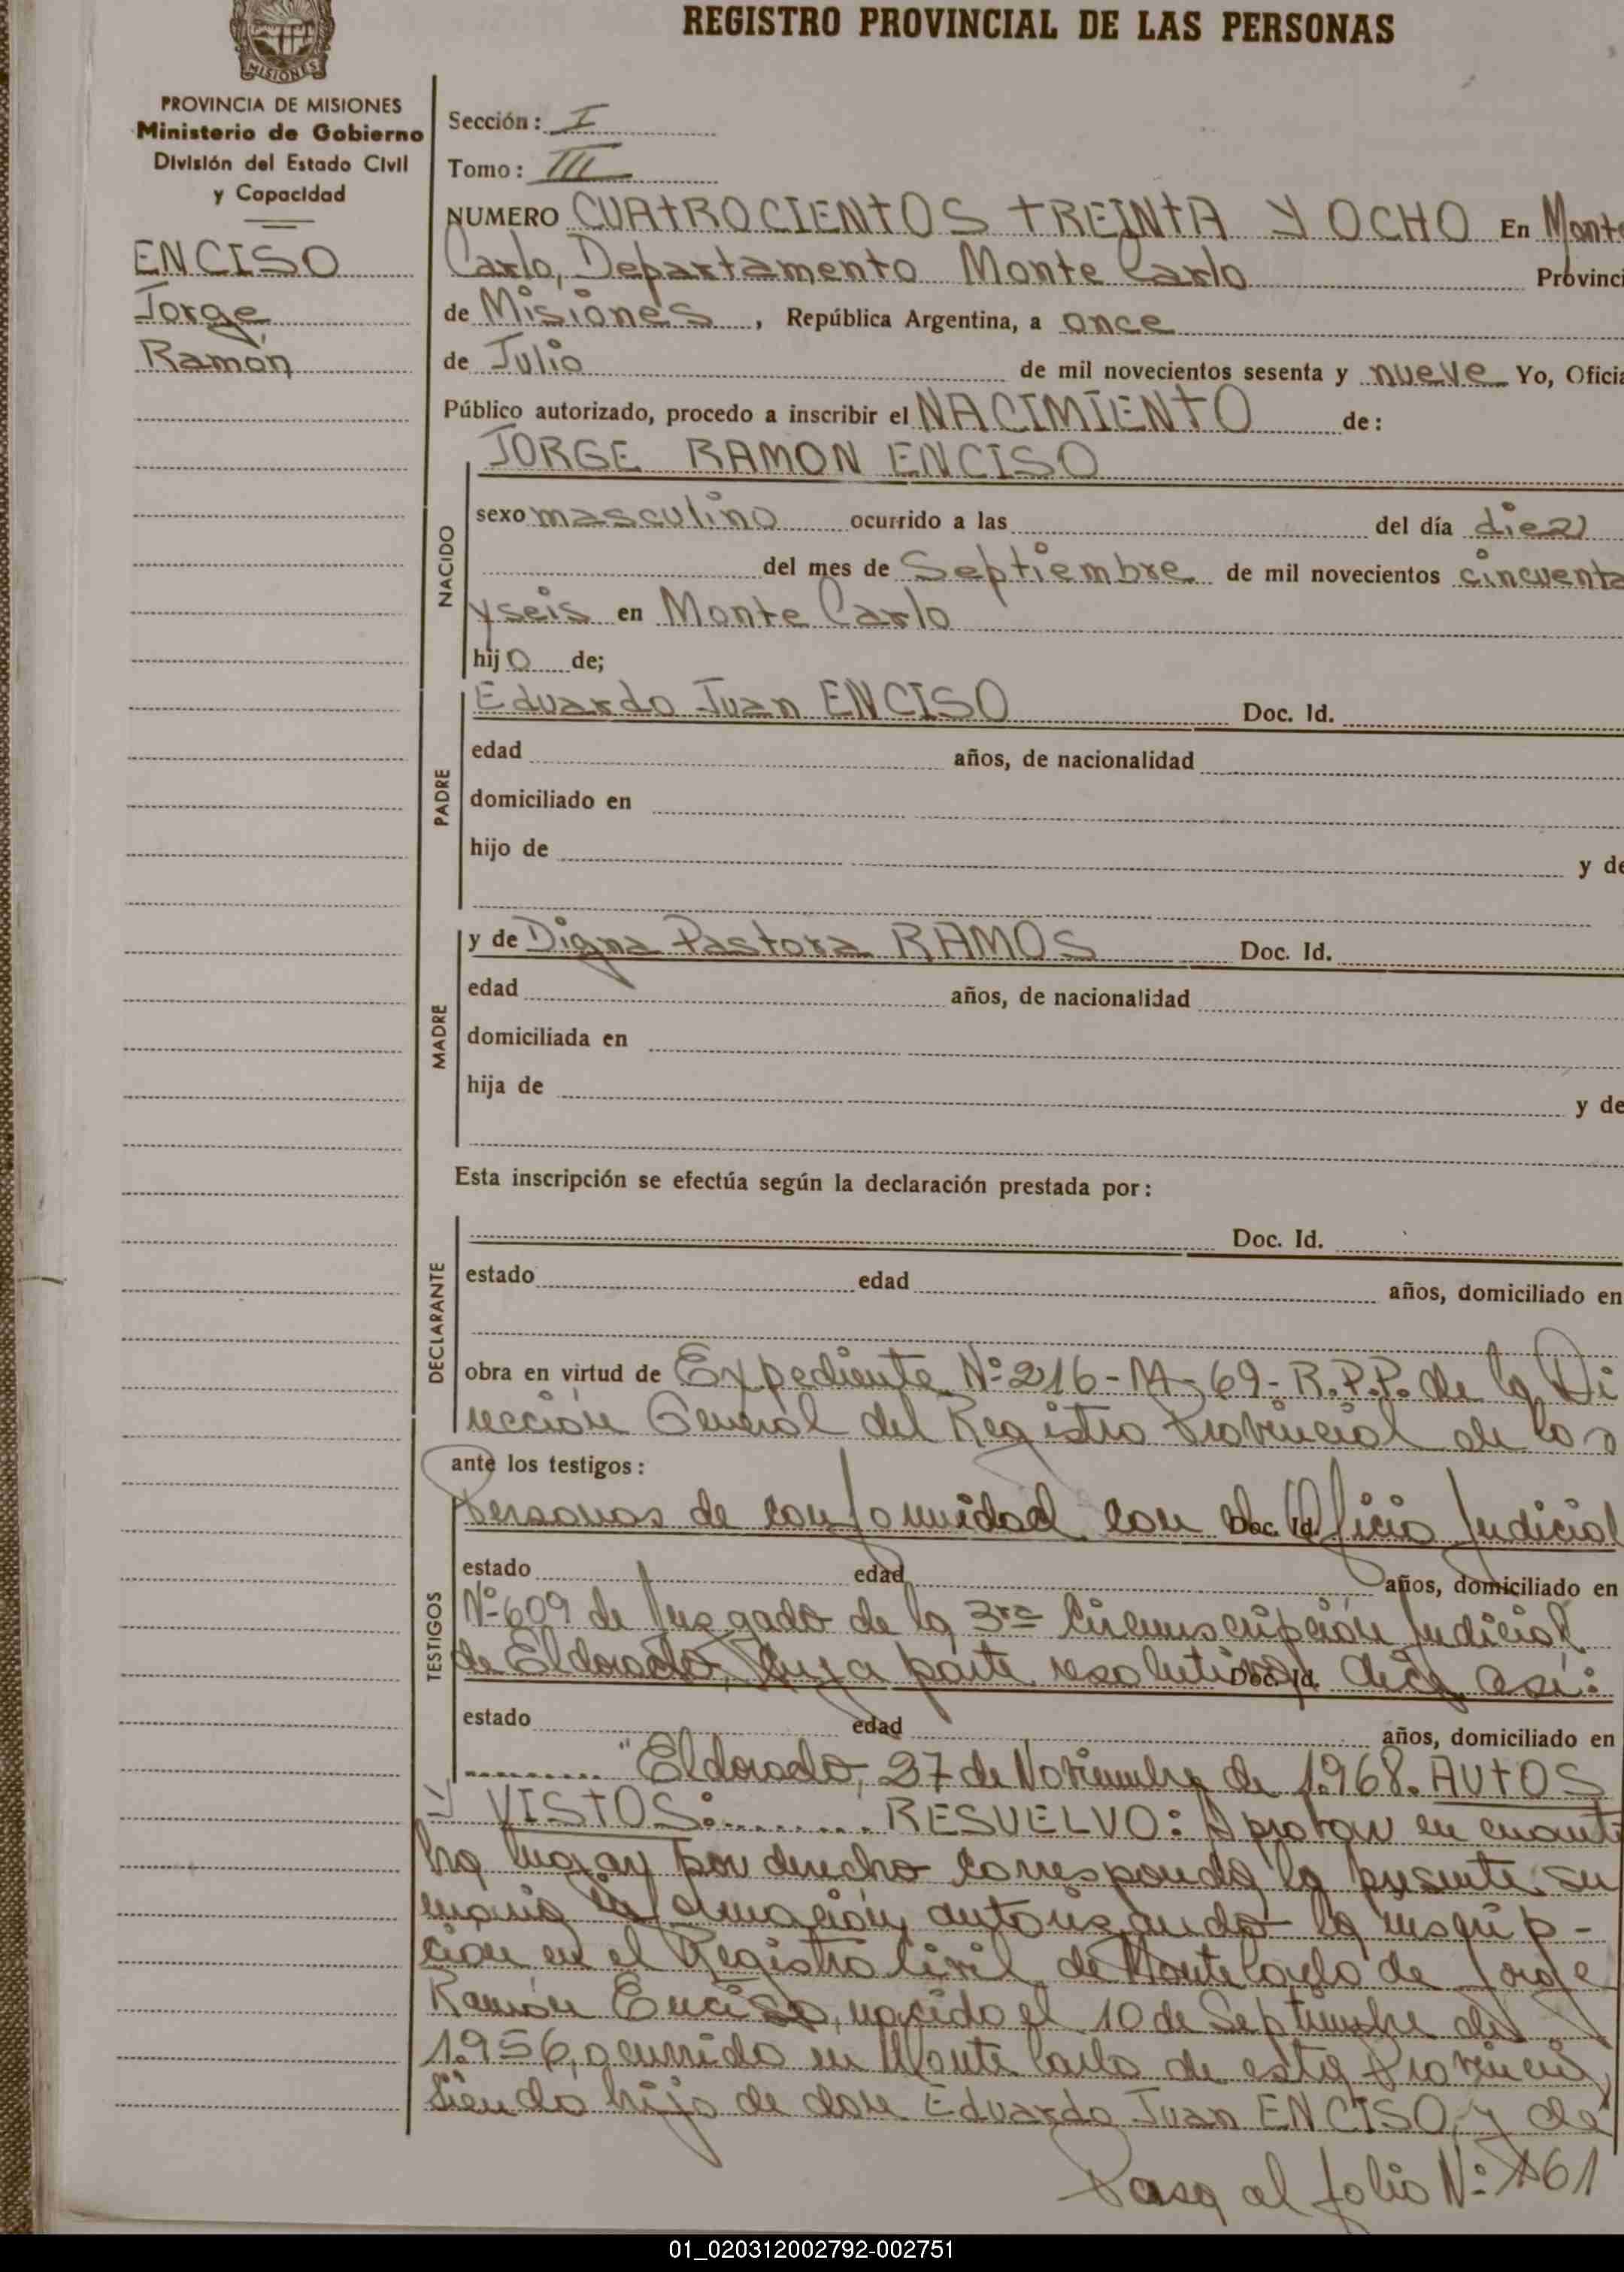 REGISTRO PROVINCIAL DE LAS PERSONAS
MISIONES
PROVINCIA DE MISIONES
Ministerio de Gobierno
División del Estado Civil
y Capacidad
ENCISO
Jorge
Ramón
Sección: I
Tomo: III
NUMERO CUATROCIENTOS TREINTA Y OCHO En Monte
Carlo, Departamento Monte Carlo Provinci
de Misiones, República Argentina, a once
de Julio de mil novecientos sesenta y nueve Yo, Oficia
Público autorizado, procedo a inscribir el NACIMIENTO de:
JORGE RAMON ENCISO
NACIDO
sexo masculino ocurrido a las del día diez
del mes de Septiembre de mil novecientos cincuenta
y seis en Monte Carlo
hijo de;
PADRE
Eduardo Juan ENCISO Doc. Id.
edad años, de nacionalidad
domiciliado en
hijo de y de
MADRE
y de Digna Pastora RAMOS Doc. Id.
edad años, de nacionalidad
domiciliada en
hija de y de
Esta inscripción se efectúa según la declaración prestada por:
DECLARANTE
Doc. Id.
estado edad años, domiciliado en
obra en virtud de Expediente Nº 216-M-69-R.P.P. de la Di
rección General del Registro Provincial de las
ante los testigos:
TESTIGOS
Personas de conformidad con el Doc. Id. Oficio Judicial
estado edad años, domiciliado en
Nº 609 de Juzgado de la 3ra Circunscripción Judicial
de Eldorado, cuya parte resolutiva Doc. Id. dice así:
estado edad años, domiciliado en
......... "Eldorado, 27 de Noviembre de 1.968. AUTOS
Y VISTOS:......... RESUELVO: Aprobar en cuanto
ha lugar por derecho corresponda la presente su
maria información, autorizando la inscrip-
ción en el Registro Civil de Monte Carlo de Jorge
Ramón Enciso, nacido el 10 de Septiembre de
1.956, ocurrido en Monte Carlo de esta Provincia,
siendo hijo de don Eduardo Juan ENCISO, y de
Pasa al folio Nº 161
01_020312002792-002751